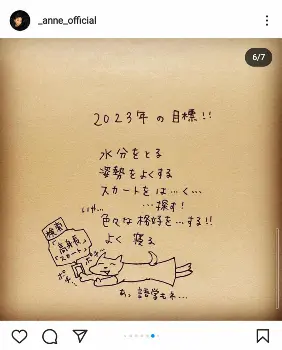 _anne_official
6/7
2023年の目標!!
水分をとる
姿勢をよくする
スカートをは…く…
いや… …探す!
色々な格好を…する!!
よく寝る
検索
「高身長」
「スカート」
ポチ…
ポチ…
あっ 語学もネ…